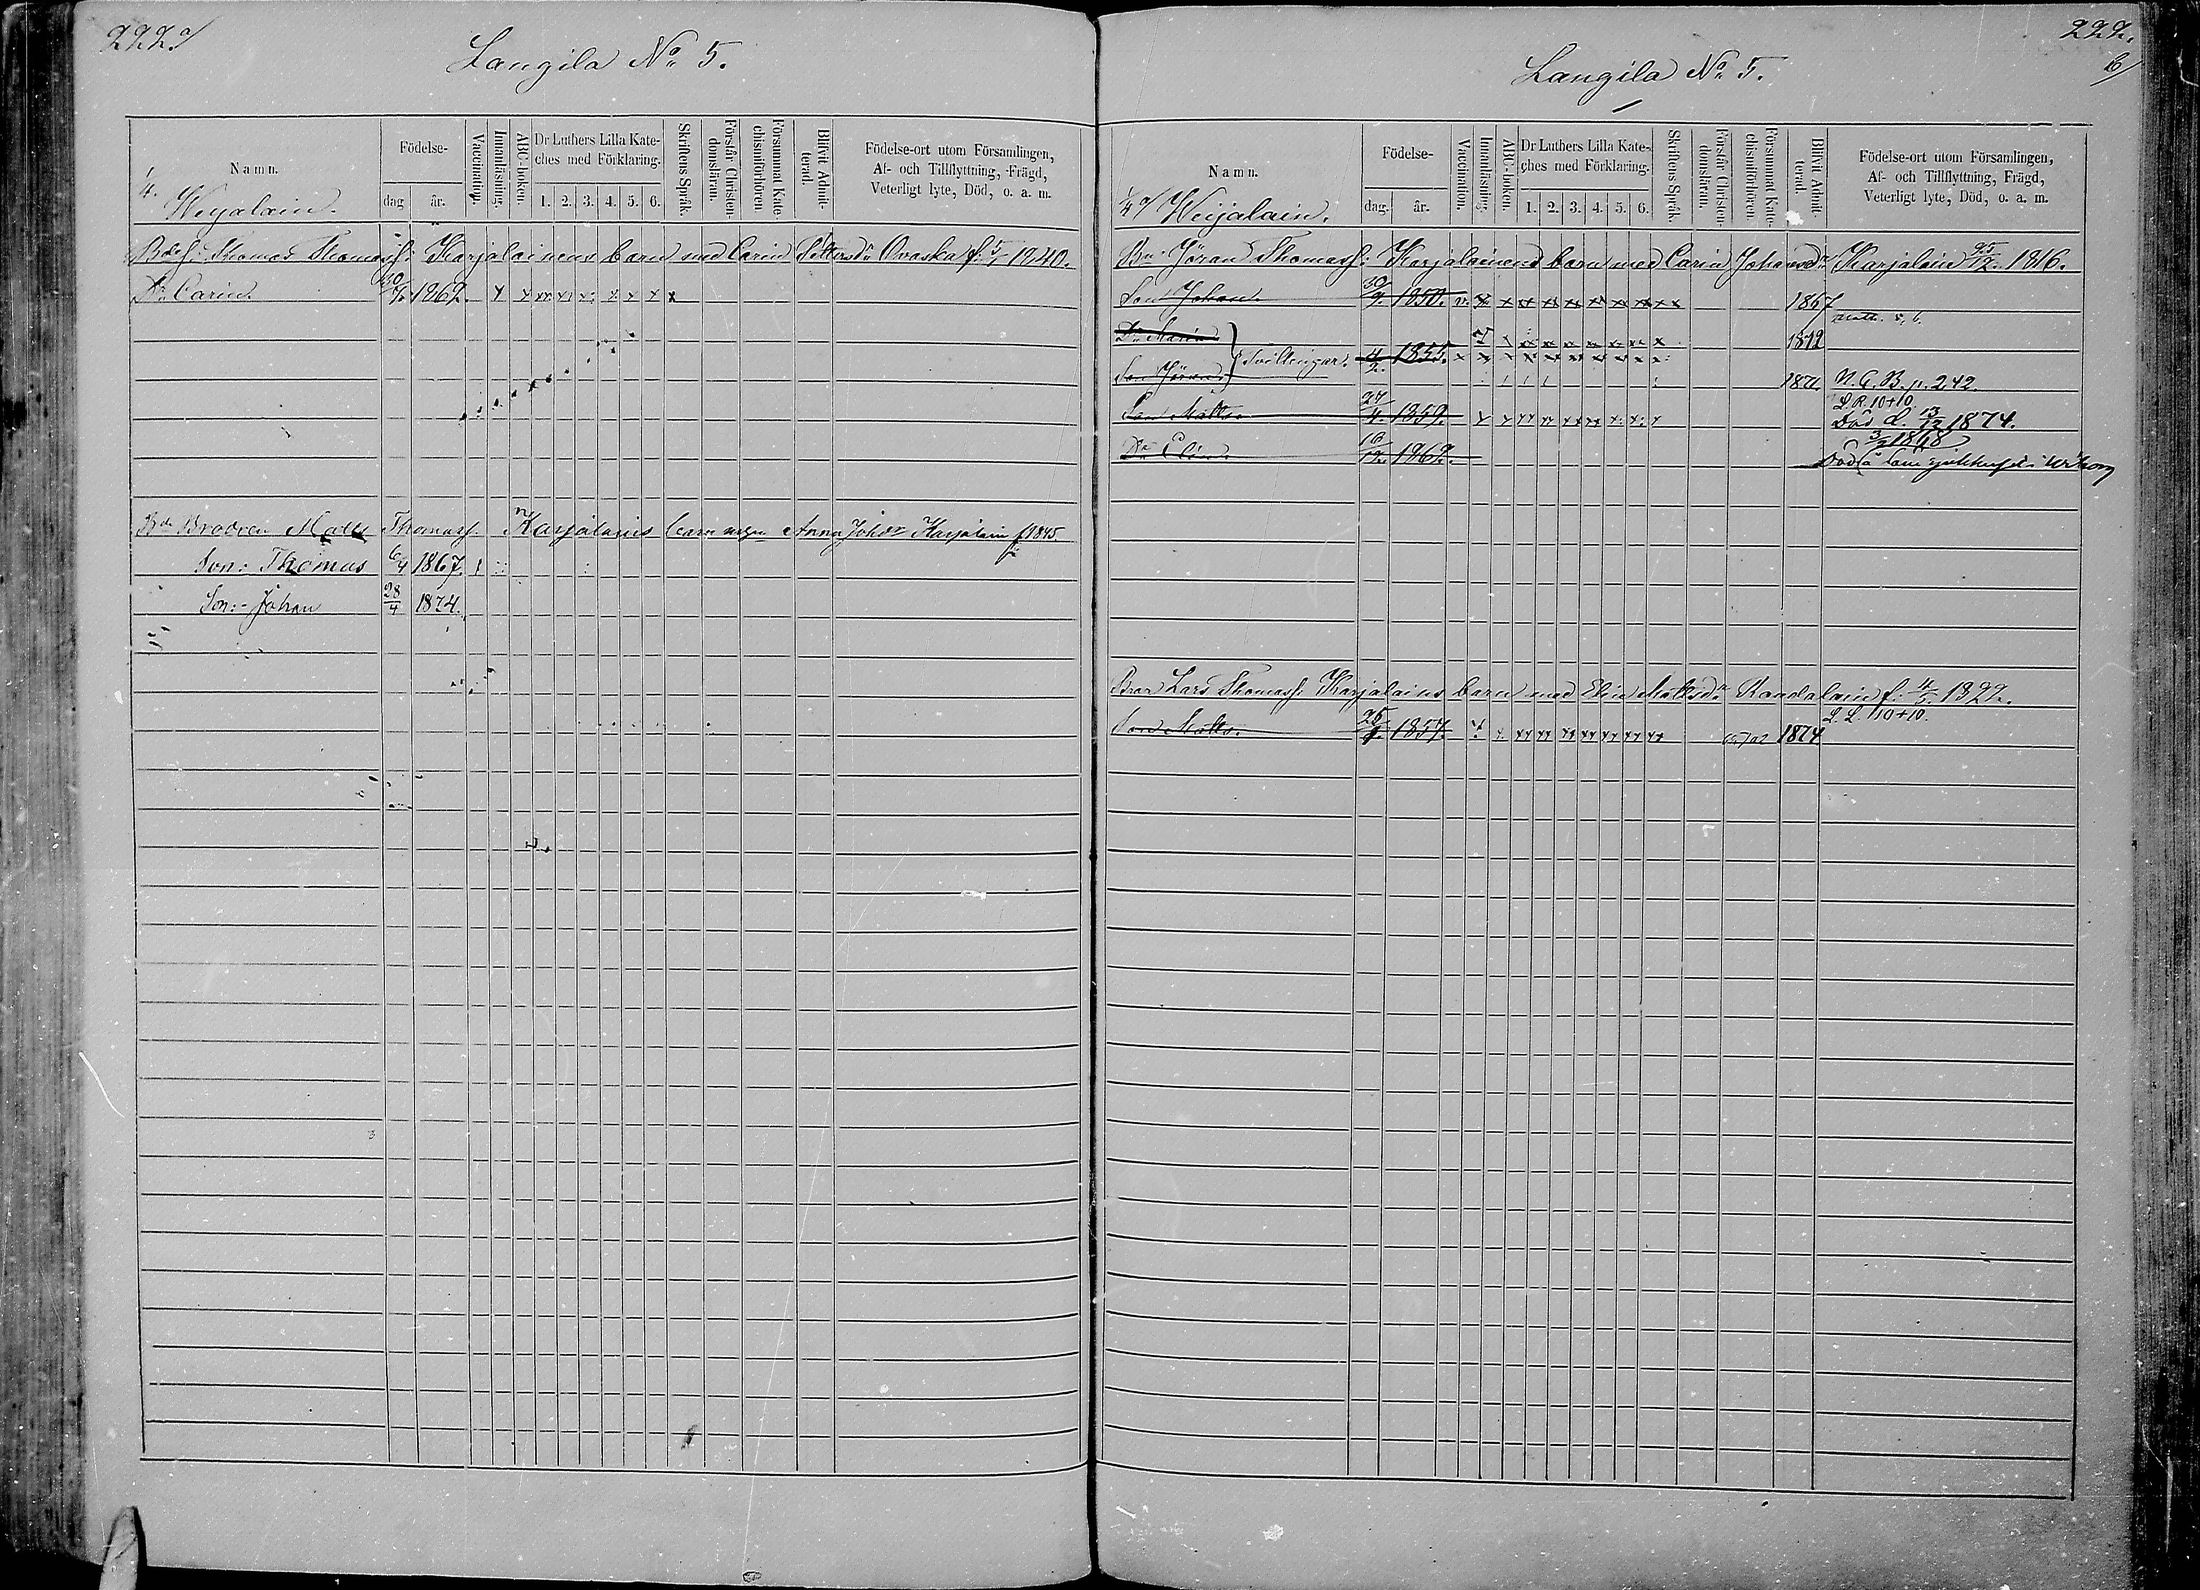 222 a/
Langila No 5.
Namn.
Födelse-
dag
år.
Vaccination.
Innanläsning.
ABC-boken.
Dr Luthers Lilla Kate-
ches med Förklaring.
1. 2. 3. 4. 5. 6.
Skriftens Språk.
Förstår Christen-
domsläran.
Försummat Kate-
chismiförhören.
Blifvit Admit-
terad.
Födelse-ort utom Församlingen,
Af- och Tillflyttning, Frägd,
Veterligt lyte, Död, o. a. m.
1/4. Weijalain.
Thomas Thomass: Karjalainens barn med Carin Pettersdr Ovaska f. 1840.
Dr Carin. 1862.
Brodren Matts Thomass. Karjalains barn Anna Johdr Karjalain f 1845.
Son: Thomas 6/4 1867.
Son:- Johan 28/4 1874.
222.
b/
Langila No 5.
Namn.
Födelse-
dag.
år.
Vaccination.
Innanläsning.
ABC-boken.
Dr Luthers Lilla Kate-
ches med Förklaring.
1. 2. 3. 4. 5. 6.
Skriftens Språk.
Förstår Christen-
domsläran.
Försummat Kate-
chismiförhören.
Blifvit Admit-
terad.
Födelse-ort utom Församlingen,
Af- och Tillflyttning, Frägd,
Veterligt lyte, Död, o. a. m.
1/4 a/ Weijalain.
Jöran Thomass: Karjalainens barn med Carin Johansdr Karjalain 25/12. 1816.
Son Johan. 30/9. 1850. 1867
Dr Maria 1872
Tvillingar. 4/2. 1855.
Son Jöran. 1871 N. C. B. p. 242.
L. R. 10+10
Son Matts. 27/4. 1859. Död d. 13/12 1874.
3/2 1868
Dr Elin. 16/12. 1862. Död i Wiborg
Lars Thomass: Karjalains barn med Elin Mattsdr Raadalain f. 1822.
L. L. 10+10.
Son Matts. 25/1. 1857. 1874